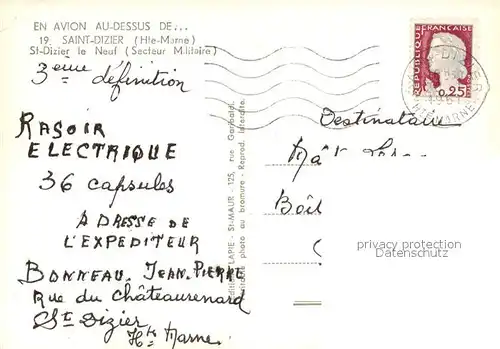 EN AVION AU-DESSUS DE...
19. SAINT-DIZIER (Hte-Marne)
St-Dizier le Neuf (Secteur Militaire)
3ème définition
RASOIR
ELECTRIQUE
36 capsules
ADRESSE DE
L'EXPEDITEUR
BONNEAU. JEAN.PIERRE
Rue du Châteaurenard
St Dizier
Hte Marne
LAPIE - St-MAUR - 125, rue Garibaldi.
photo au bromure - Reprod. interdite.
REPUBLIQUE FRANÇAISE
0,25
Destinataire
privacy protection
Datenschutz